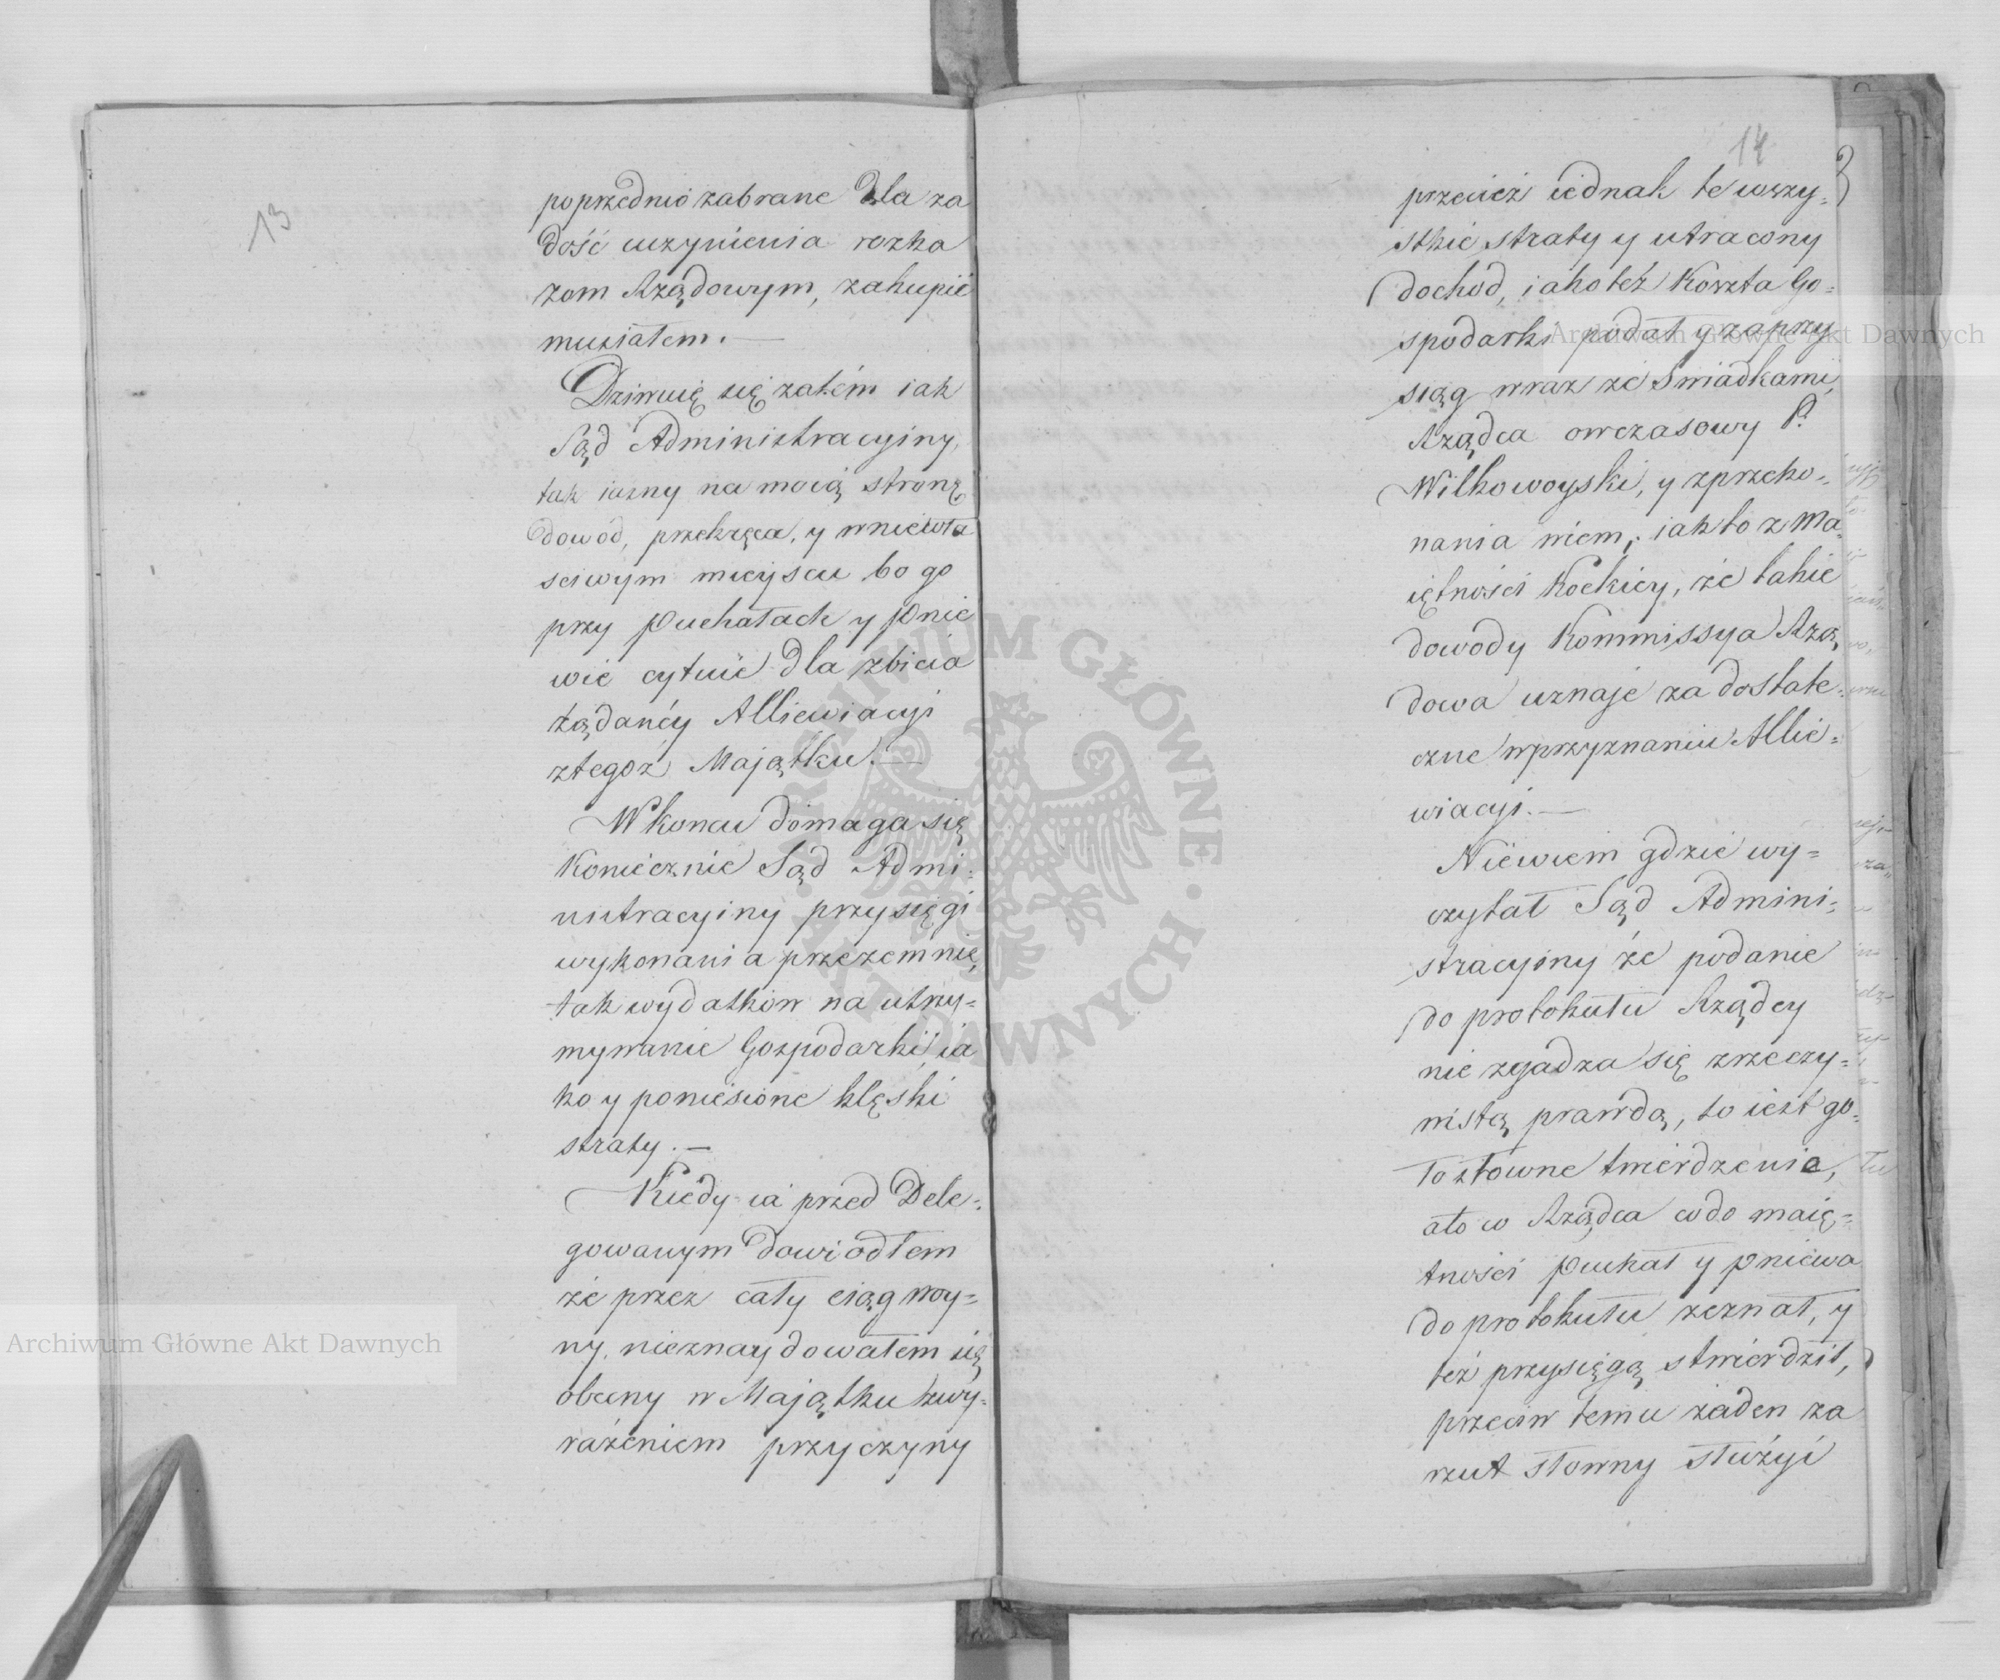 13
poprzednio zabrane dla za
dość uczynienia rozka
zom Rządowym, zakupić
musiałem. —
Dziwuię się zatém iak
Sąd Administracyiny,
tak iasny na moią stronę
dowód, przekręca, y wniewła
sciwym mieyscu bo go
przy Puchałach y Pnie
wie cytuie dla zbicia
żądanéy Alliewiacyi
ztegoż Majątku. —
W koncu domaga się
Koniecznie Sąd Admi:
nistracyiny przysięgi
wykonania przezemnie,
tak wydatków na utrzy=
mywanie Gospodarki, ia
ko y poniesione klęski
straty. —
Kiedy ia przed Dele=
gowanym dowiodłem
że przez cały ciąg woy=
ny, nieznaydowałem się
obecny w Majątku zwy=
rażeniem przyczyny
14
przecież iednak te wszy=
stkie straty y utracony
dochod, iako też Koszta Go=
spodarki podał y zaprzy
siąg wraz ze Swiadkami,
Rządca owczasowy P.
Wilkowoyski, y zprzeko=
nania wiem, iak to z Ma
iętności Kockiey, że takie
dowody Kommissya Rzą
dowa uznaje za dostate=
czne wprzyznaniu Allie=
wiacyi. —
Niewiem gdzie wy=
czytał Sąd Admini=
stracyiny że podanie
do protokułu Rządcy
nie zgadza się zrzeczy=
wistą prawdą, to iest go=
łosłowne twierdzenie,
ato co Rządca codo maię=
tności Puchał y Pniewa
do protokułu zeznał, y
też przysięgą stwierdził,
przeciw temu żaden za
rzut słowny służyć
Archiwum Główne Akt Dawnych
Archiwum Główne Akt Dawnych
ARCHIWUM GŁÓWNE AKT DAWNYCH